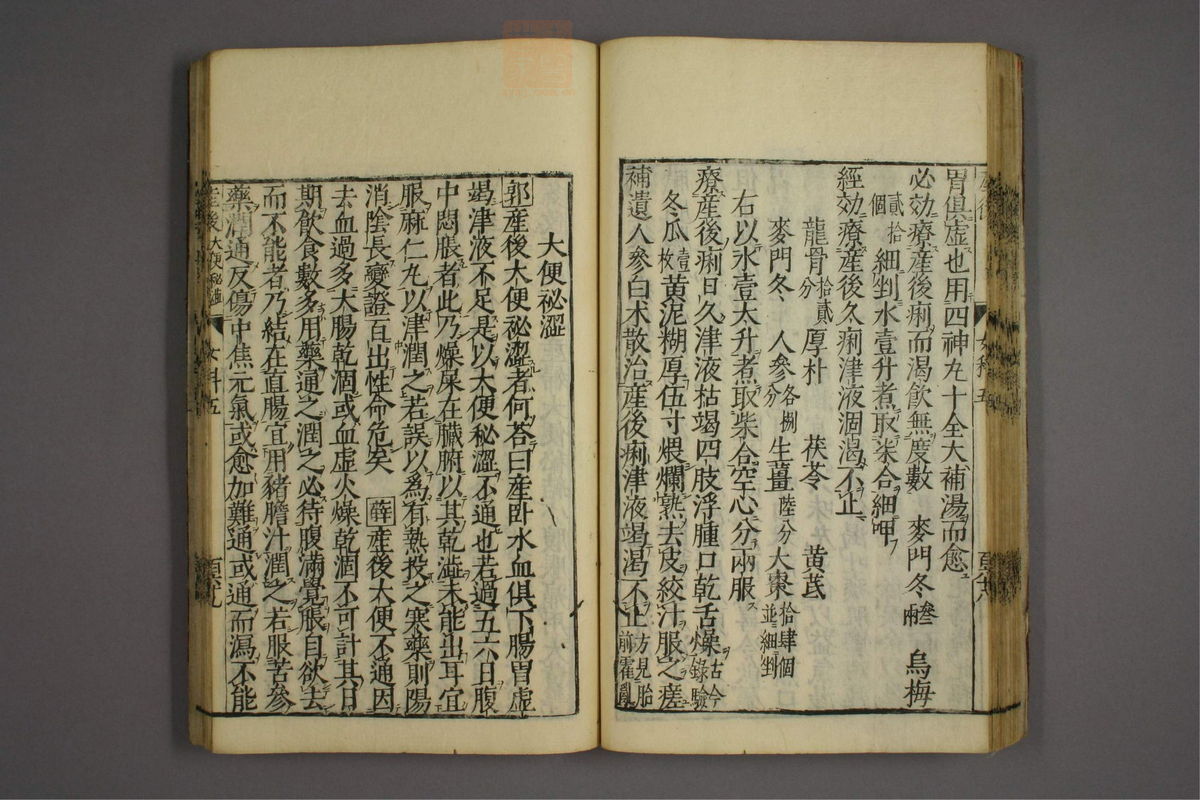 胃俱虛也用四神丸十全大補湯而愈
必効療產後痢而渴飲無度數 麥門冬叁兩 烏梅
貳拾個細剉水壹升煮取柒合細呷
經効療產後久痢津液涸渴不止
龍骨拾貳分厚朴 茯苓 黃芪
麥門冬 人參各捌分生薑陸分大棗拾肆個並細剉
右以水壹大升煮取柒合空心分兩服
療產後痢日久津液枯竭四肢浮腫口乾舌燥古今錄驗
冬瓜壹枚黃泥糊厚伍寸煨爛熟去皮絞汁服之瘥
補遺人參白朮散治產後痢津液竭渴不止方見胎前霍亂
大便祕澀
郭產後大便祕澀者何荅曰產卧水血俱下腸胃虛
竭津液不足是以大便秘澀不通也若過五六日腹
中悶脹者此乃燥屎在臟腑以其乾澁未能出耳宜
服麻仁丸以津潤之若誤以爲有熱投之寒藥則陽
消陰長變證百出性命危矣 薛產後大便不通因
去血過多大腸乾涸或血虛火燥乾涸不可計其日
期飲食數多用藥通之潤之必待腹滿覺脹自欲去
而不能者乃結在直腸宜用豬膽汁潤之若服苦參
藥潤通反傷中焦元氣或愈加難通或通而瀉不能
產後 大便秘澁 女科五